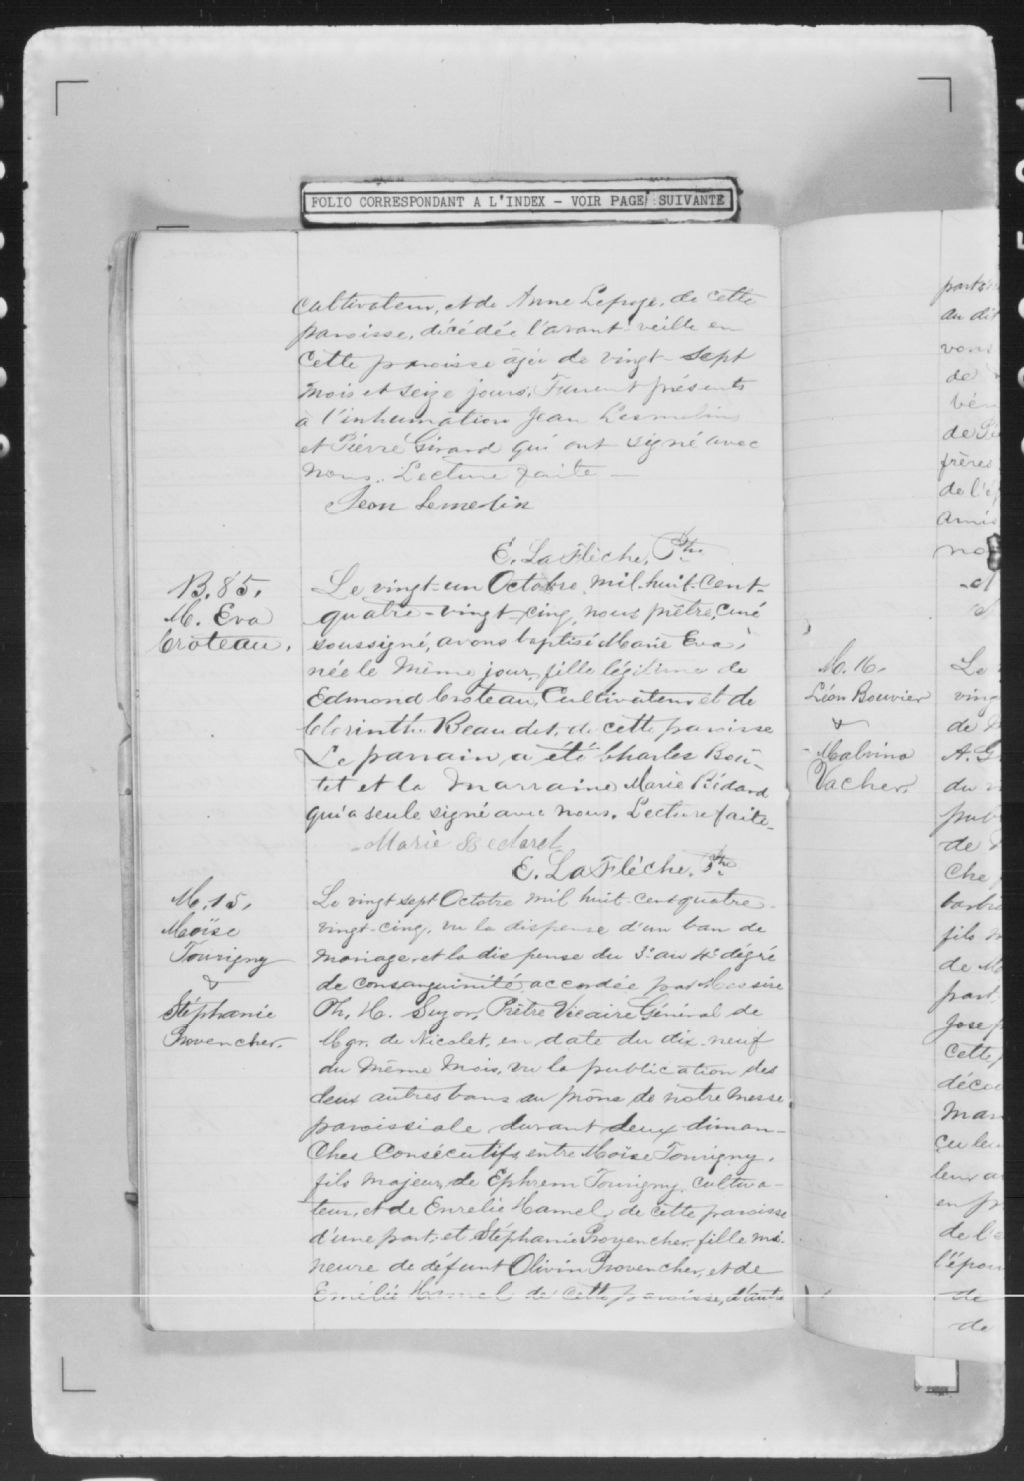 FOLIO CORRESPONDANT A L'INDEX - VOIR PAGE SUIVANTE
cultivateur, et de Anne Lepage, de cette
paroisse, décédée l'avant-veille en
cette paroisse âgée de vingt-sept
mois et seize jours. Furent présents
à l'inhumation Jean Lesmelin
et Pierre Girard qui ont signé avec
nous. Lecture faite —
Jean Lemelin
E. LaFlèche, Ptre
B. 85.
M. Eva
Croteau.
Le vingt-un Octobre mil-huit-cent-
quatre-vingt-cinq, nous prêtre, curé
soussigné, avons baptisé Marie Eva,
née le même jour, fille légitime de
Edmond Croteau, Cultivateur et de
Corinthe Beaudet, de cette paroisse
Le parrain a été Charles Bou-
tet et la marraine Marie Bédard
qui a seule signé avec nous. Lecture faite.
Marie Bedard
E. LaFlèche, Ptre
M. 15.
Moïse
Tourigny
&
Stéphanie
Provencher.
Le vingt sept Octobre mil huit-cent quatre-
vingt-cinq, vu la dispense d'un ban de
mariage, et la dispense du 3e au 4e dégré
de consanguinité accordée par Messire
Ph. H. Suzor, Prêtre Vicaire Général de
Mgr. de Nicolet, en date du dix-neuf
du même mois, vu la publication des
deux autres bans au prône de notre messe
paroissiale durant deux diman-
ches consécutifs entre Moïse Tourigny,
fils majeur, de Ephrem Tourigny, cultiva-
teur, et de Enrélie Hamel, de cette paroisse
d'une part; et Stéphanie Provencher, fille mi-
neure de défunt Olivin Provencher, et de
Emélie Hamel de cette paroisse, d'autre
M. 16.
Léon Bouvier
&
Malvina
Vacher.
au dit
vous
de
de
frères
de l'é
Le
ving
de
A. G
du
pub
de
che
fils
de M
part
Josep
cette
décé
mar
çu le
leur
en p
de l'e
l'épou
de
de